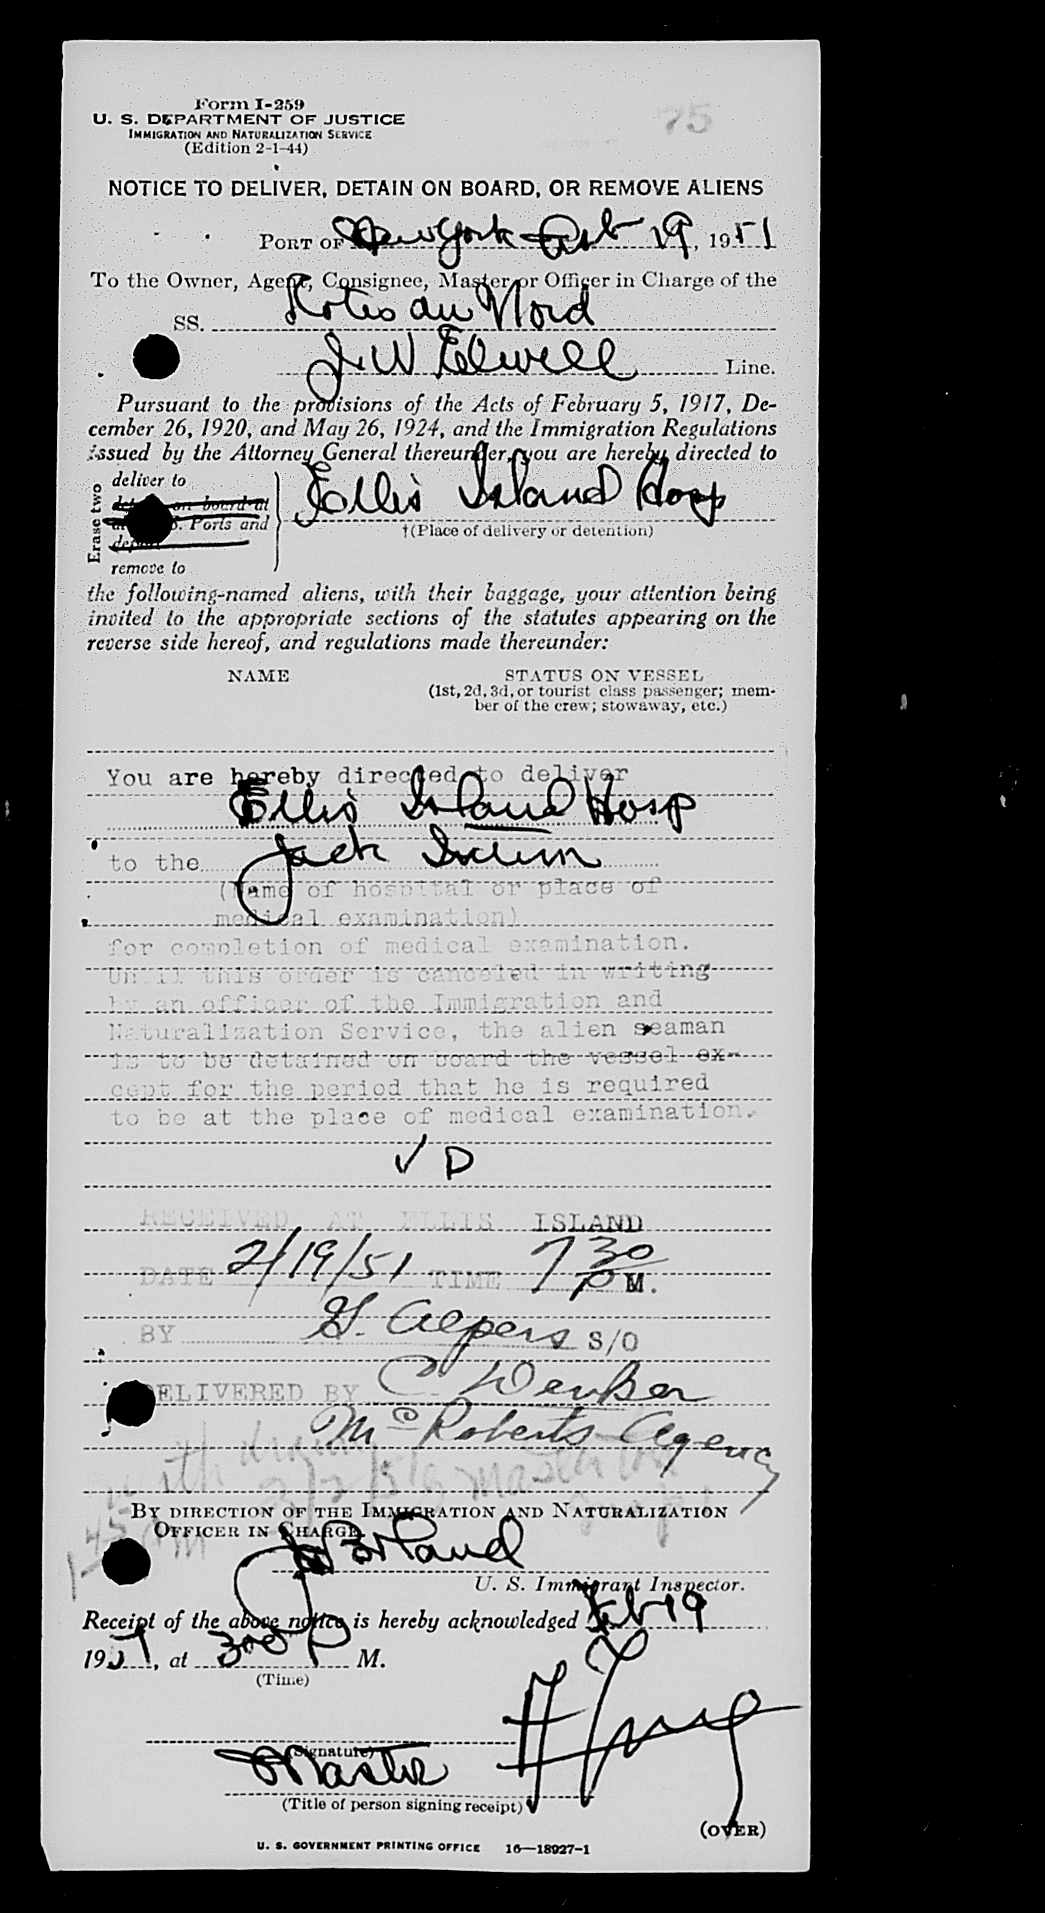 75
Form I-259
U. S. DEPARTMENT OF JUSTICE
IMMIGRATION AND NATURALIZATION SERVICE
(Edition 2-1-44)
NOTICE TO DELIVER, DETAIN ON BOARD, OR REMOVE ALIENS
PORT OF New York Feb 19, 1951
To the Owner, Agent, Consignee, Master or Officer in Charge of the
SS. du Nord
J W Elwell Line.
Pursuant to the provisions of the Acts of February 5, 1917, De-
cember 26, 1920, and May 26, 1924, and the Immigration Regulations
issued by the Attorney General thereunder, you are hereby directed to
Erase two
deliver to
on board at
Ports and
remove to
Ellis Island Hosp
†(Place of delivery or detention)
the following-named aliens, with their baggage, your attention being
invited to the appropriate sections of the statutes appearing on the
reverse side hereof, and regulations made thereunder:
NAME STATUS ON VESSEL
(1st, 2d, 3d, or tourist class passenger; mem-
ber of the crew; stowaway, etc.)
You are hereby directed to deliver
Ellis Island Hosp
to the Jack
(Name of hospital or place of
medical examination)
for completion of medical examination.
Until this order is canceled in writing
by an officer of the Immigration and
Naturalization Service, the alien seaman
is to be detained on board the vessel ex-
cept for the period that he is required
to be at the place of medical examination.
V D
RECEIVED AT ELLIS ISLAND
DATE 2/19/51 TIME 7 30 P M.
BY G. Alpers S/O
DELIVERED BY C.
McRoberts Agency
BY DIRECTION OF THE IMMIGRATION AND NATURALIZATION
OFFICER IN CHARGE
J Borland
U. S. Immigrant Inspector.
Receipt of the above notice is hereby acknowledged Feb 19
1951, at 300 P M.
(Time)
(Signature)
Master
(Title of person signing receipt)
(OVER)
U. S. GOVERNMENT PRINTING OFFICE 16—18927-1